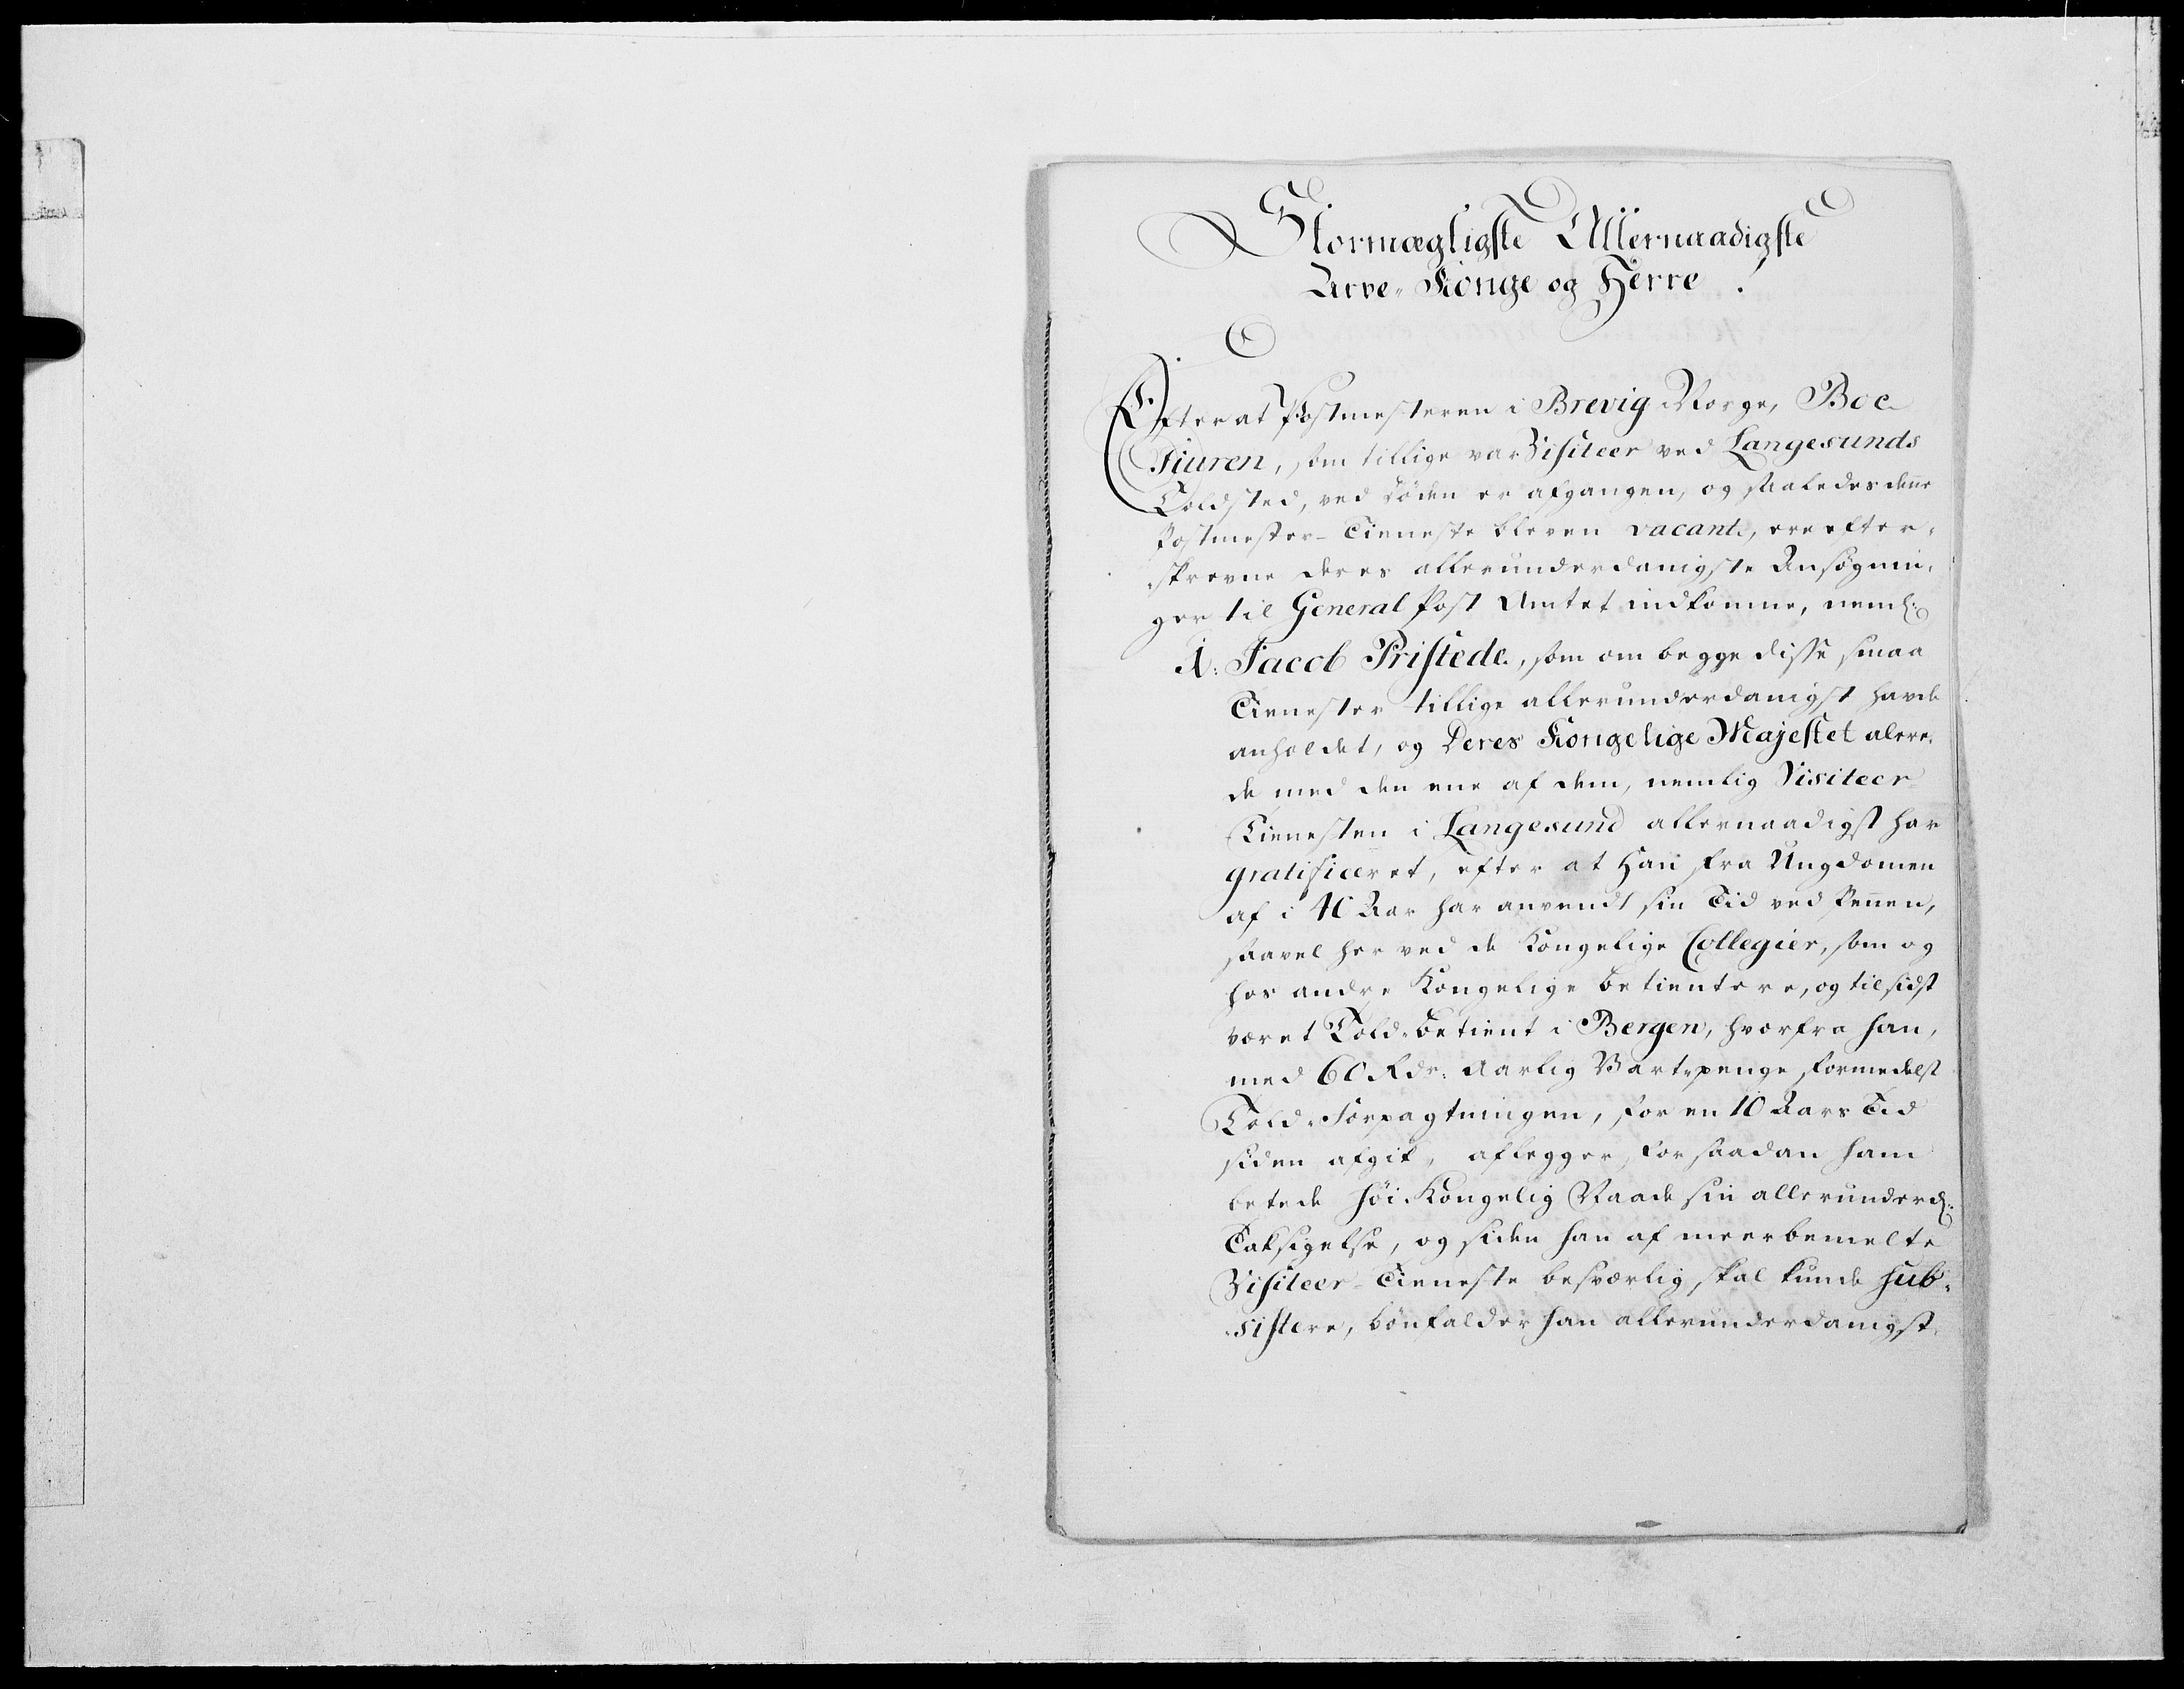 Stormægtigste Allernaadigste
Arve-Konge og Herre!
Efter at Postmesteren i Brevig i Norge, Boe
Tiuren, som tillige var Visiteer ved Langesunds
Toldsted, ved døden er afgangen, og saaledes denne
Postmester-Tieneste bleven vacant, ere efter-
skrevne deres allerunderdanigste Ansøgnin-
ger til General Post Amtet indkomne, neml:
1. Jacob Pristede, som om begge disse smaa
Tienester tillige allerunderdanigst havde
anholdet, og Deres Kongelige Majestet alere-
de med den ene af dem, nemlig Visiteer-
Tienesten i Langesund allernaadigst har
gratificeret, efter at Han fra Ungdomen
af i 40 Aar har anvendt sin Tid ved Pennen,
saavel her ved de Kongelige Collegier, som og
hos andre Kongelige betientere, og tilsidst
været Told-betient i Bergen, hvorfra han,
med 60 Rdr: aarlig Vartepenge formedelst
Told-Forpagtningen, for en 10 Aars Tid
siden afgik, aflegger for saadan ham
betede høi Kongelig Naade sin allerunderd:
Taksigelse, og siden han af meerbemelte
Visiteer-Tieneste besværlig skal kunde sub-
sistere, bönfalder han allerunderdanigst